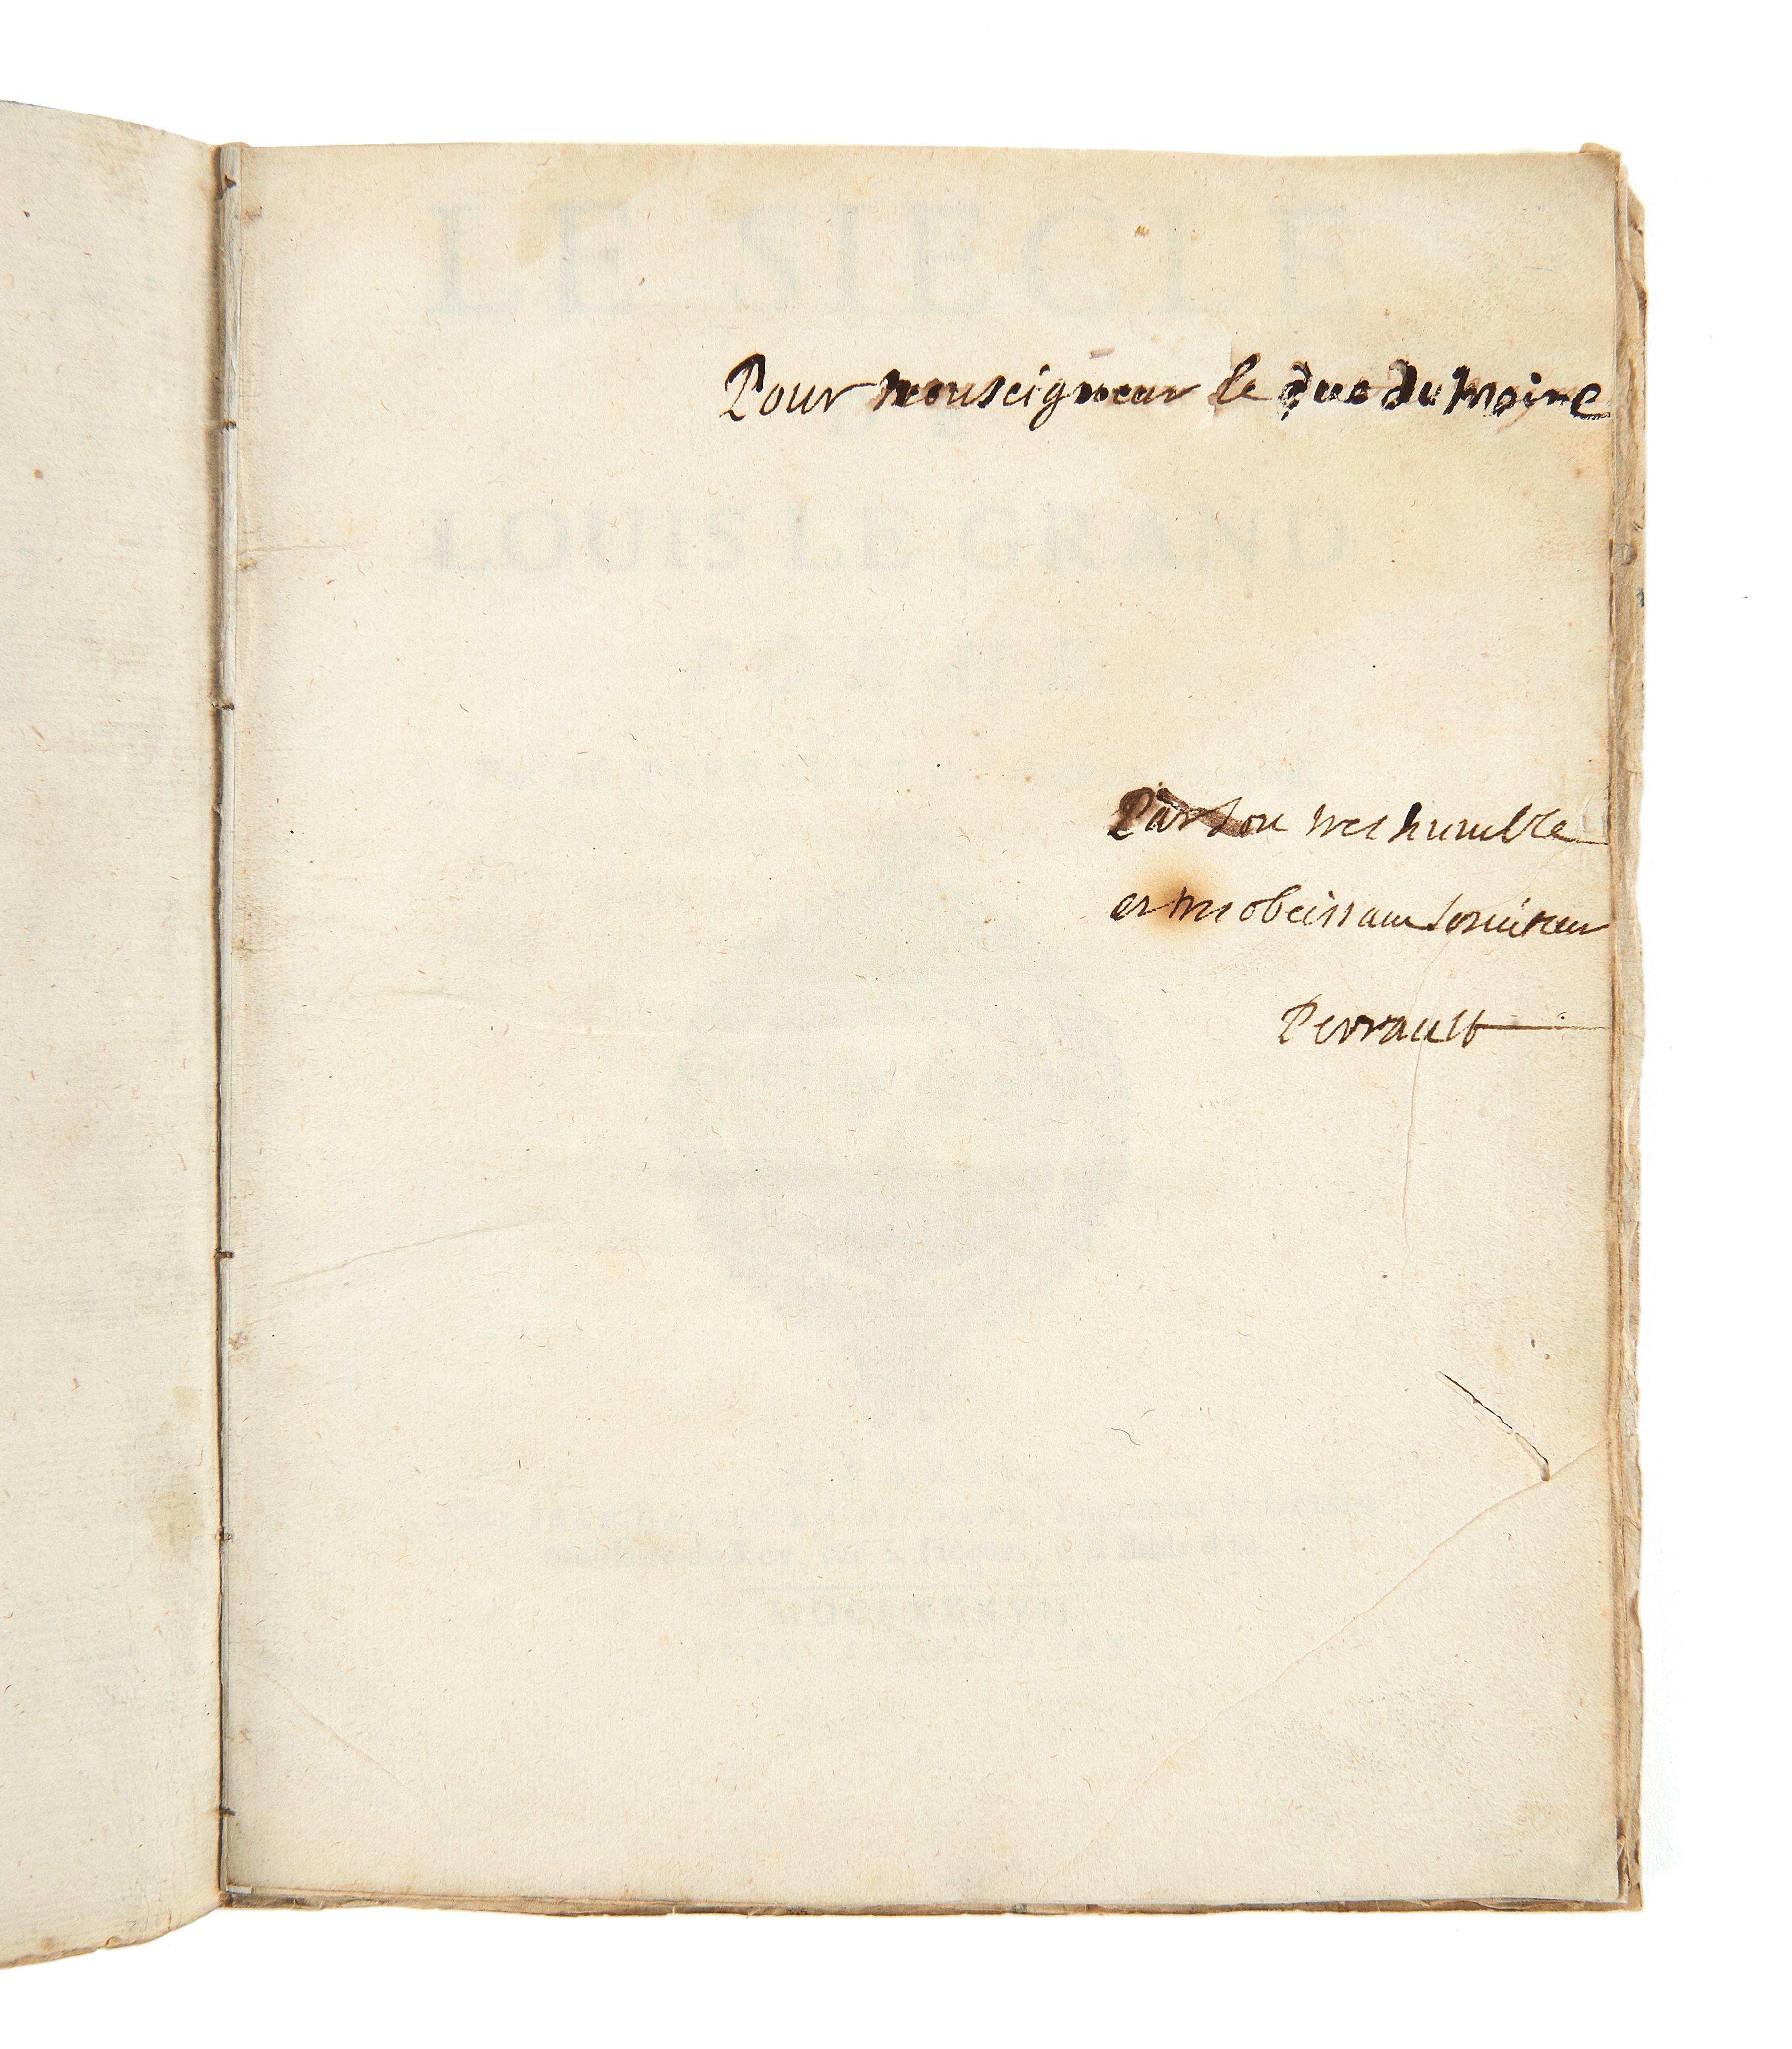 LE SIECLE
Pour monseigneur le duc du Maine
DE
LOUIS LE GRAND
POEME
PERRAULT
Par son tres humble
et tres obeissant seruiteur
Perrault
MDCLXXXVII